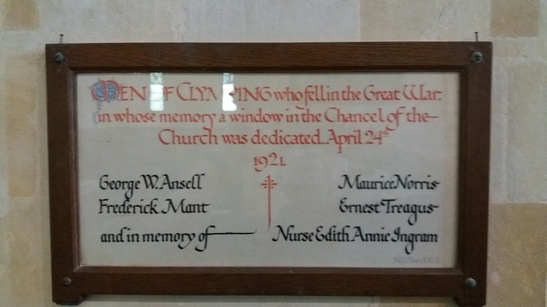 MEN OF CLYMPING who fell in the Great War:
in whose memory a window in the Chancel of the
Church was dedicated. April 24th
1921
George W. Ansell
Maurice Norris
Frederick Mant
Ernest Treagus
and in memory of Nurse Edith Annie Ingram